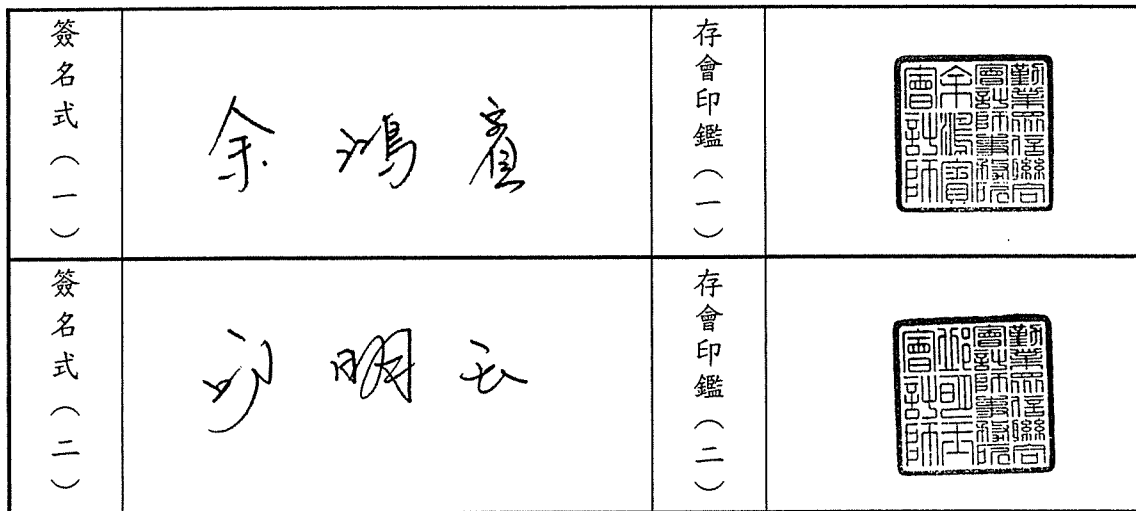 簽名式（一）
余鴻賓
存會印鑑（一）
勤業眾信聯合
會計師事務所
余鴻賓
會計師
簽名式（二）
邱明玉
存會印鑑（二）
勤業眾信聯合
會計師事務所
邱明玉
會計師